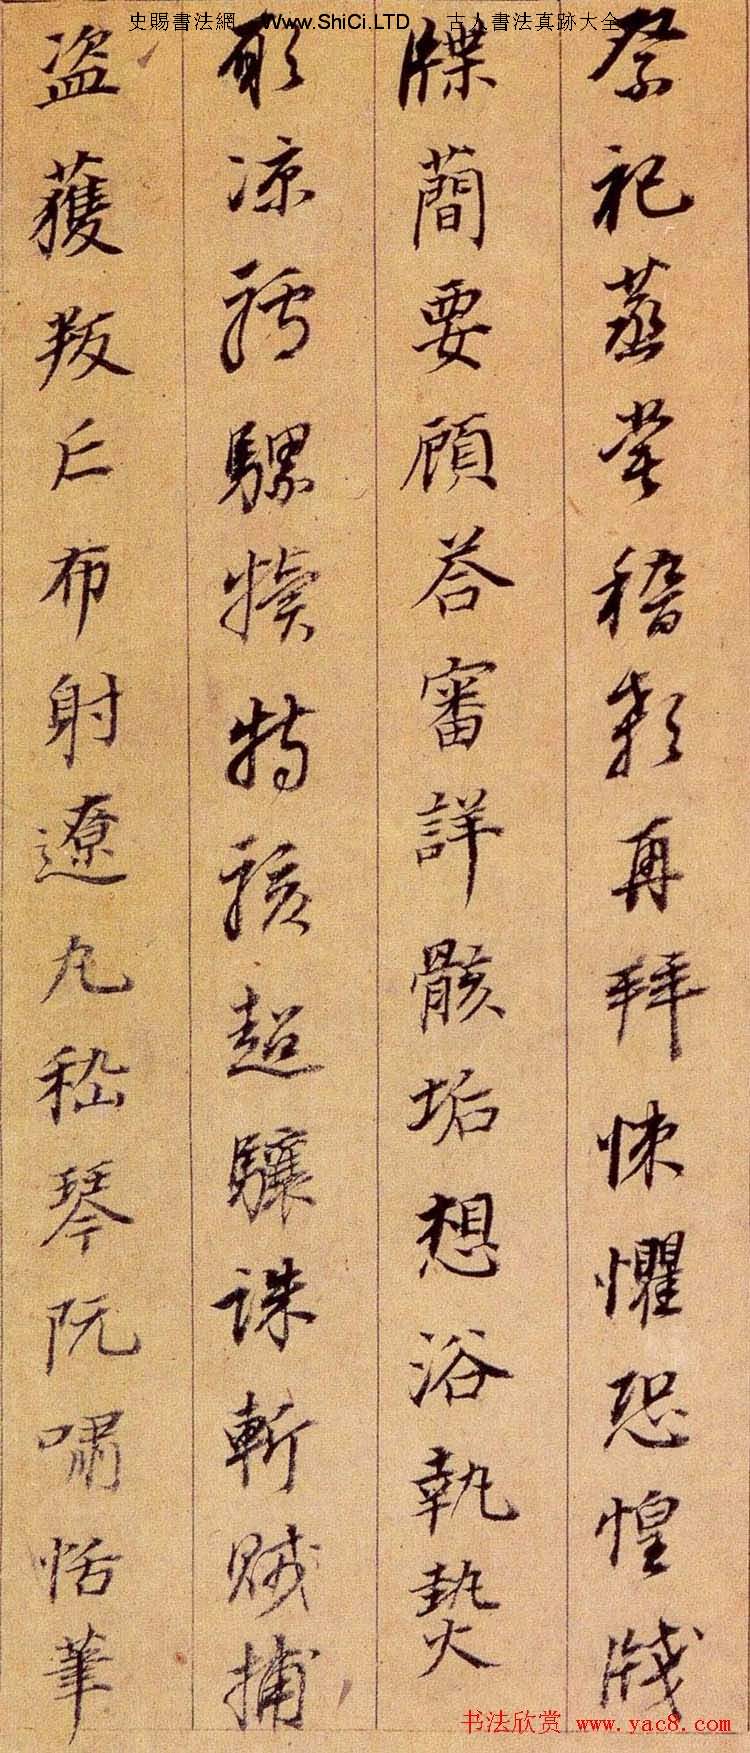 史賜書法網 www.ShiCi.LTD 古人書法真跡大全
祭祀蒸嘗稽顙再拜悚懼恐惶牋
牒蕳要顧荅審詳骸垢想浴執熱
願凉驢騾犢特駭超驤誅斬賊捕
盗獲叛亡布射遼丸嵇琴阮嘯恬筆
书法欣赏 www.yac8.com